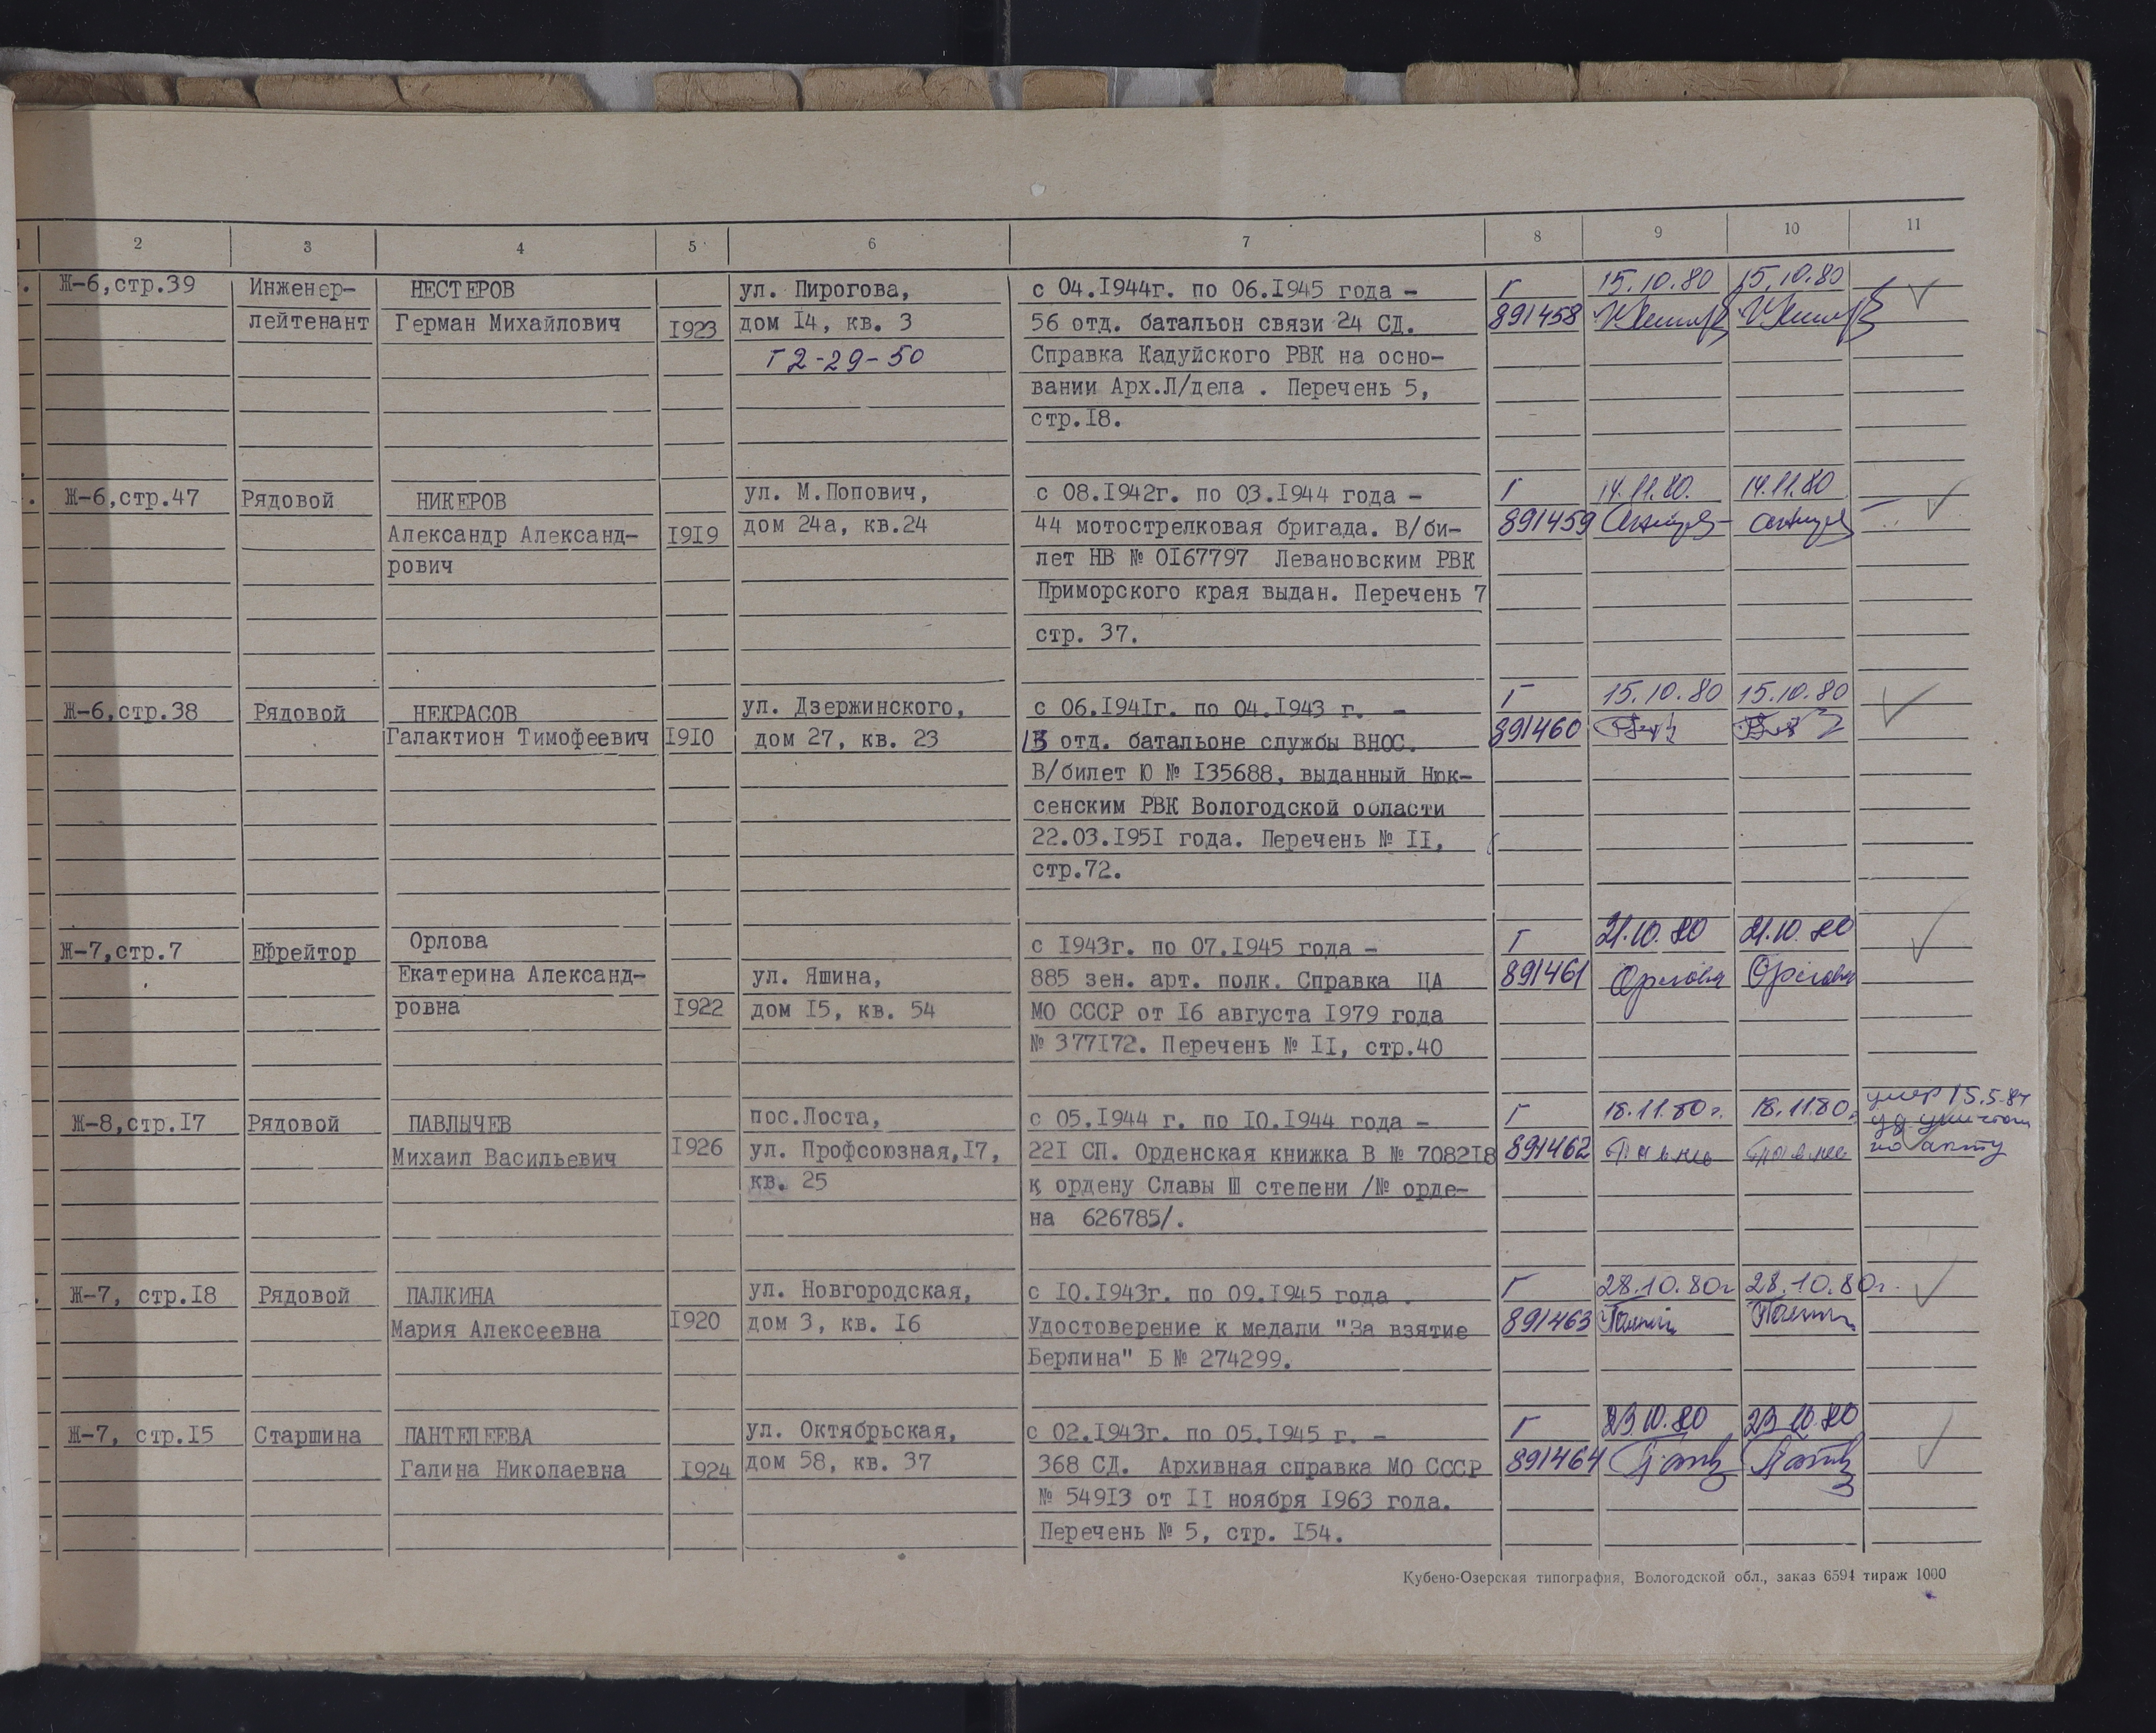 2 3 4 5 6 7 8 9 10 11
Ж-6,стр.39 Инженер- НЕСТЕРОВ ул. Пирогова, с 04.1944г. по 06.1945 года - Г 15.10.80 15.10.80
лейтенант Герман Михайлович 1923 дом 14, кв. 3 56 отд. батальон связи 24 СД. 891458
т 2-29-50 Справка Кадуйского РВК на осно-
вании Арх.Л/дела . Перечень 5,
стр.18.
Ж-6,стр.47 Рядовой НИКЕРОВ ул. М.Попович, с 08.1942г. по 03.1944 года - Г 14.11.80. 14.11.80
Александр Александ- 1919 дом 24а, кв.24 44 мотострелковая бригада. В/би- 891459
рович лет НВ № 0167797 Левановским РВК
Приморского края выдан. Перечень 7
стр. 37.
Ж-6,стр.38 Рядовой НЕКРАСОВ ул. Дзержинского, с 06.1941г. по 04.1943 г. - Г 15.10.80 15.10.80
Галактион Тимофеевич 1910 дом 27, кв. 23 13 отд. батальоне службы ВНОС. 891460
В/билет Ю № 135688, выданный Нюк-
сенским РВК Вологодской области
22.03.1951 года. Перечень № II,
стр.72.
Ж-7,стр.7 Ефрейтор Орлова с 1943г. по 07.1945 года - Г 21.10.80 21.10.80
Екатерина Александ- ул. Яшина, 885 зен. арт. полк. Справка ЦА 891461 Орлова Орлова
ровна 1922 дом 15, кв. 54 МО СССР от 16 августа 1979 года
№ 377172. Перечень № II, стр.40
Ж-8,стр.17 Рядовой ПАВЛЫЧЕВ пос.Лоста, с 05.1944 г. по 10.1944 года - Г 18.11.80г. 18.11.80. умер 15.5.84
Михаил Васильевич 1926 ул. Профсоюзная,17, 221 СП. Орденская книжка В № 708218 891462 по акту
кв. 25 к ордену Славы III степени /№ орде-
на 626785/.
Ж-7, стр.18 Рядовой ПАЛКИНА ул. Новгородская, с 10.1943г. по 09.1945 года . Г 28.10.80г 28.10.80г.
Мария Алексеевна 1920 дом 3, кв. 16 Удостоверение к медали "За взятие 891463
Берлина" Б № 274299.
Ж-7, стр.15 Старшина ПАНТЕЛЕЕВА ул. Октябрьская, с 02.1943г. по 05.1945 г. - Г 23.10.80 23.10.80
Галина Николаевна 1924 дом 58, кв. 37 368 СД. Архивная справка МО СССР 891464
№ 54913 от II ноября 1963 года.
Перечень № 5, стр. 154.
Кубено-Озерская типография, Вологодской обл., заказ 6594 тираж 1000